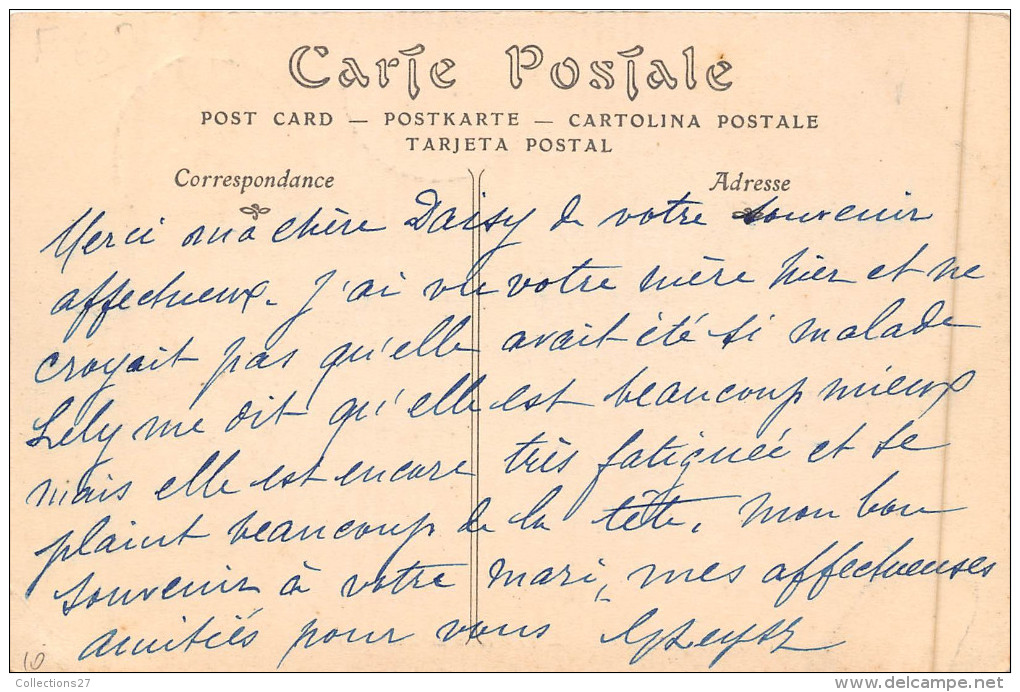 Carte Postale
POST CARD — POSTKARTE — CARTOLINA POSTALE
TARJETA POSTAL
Correspondance
Adresse
Merci ma chère Daisy de votre souvenir
affectueux. J'ai vu votre mère hier et ne
croyait pas qu'elle avait été si malade
Lely me dit qu'elle est beaucoup mieux
mais elle est encore très fatiguée et se
plaint beaucoup de la tête, mon bon
souvenir à votre mari, mes affectueuses
amitiés pour vous
10
Collections27
delcampe.net